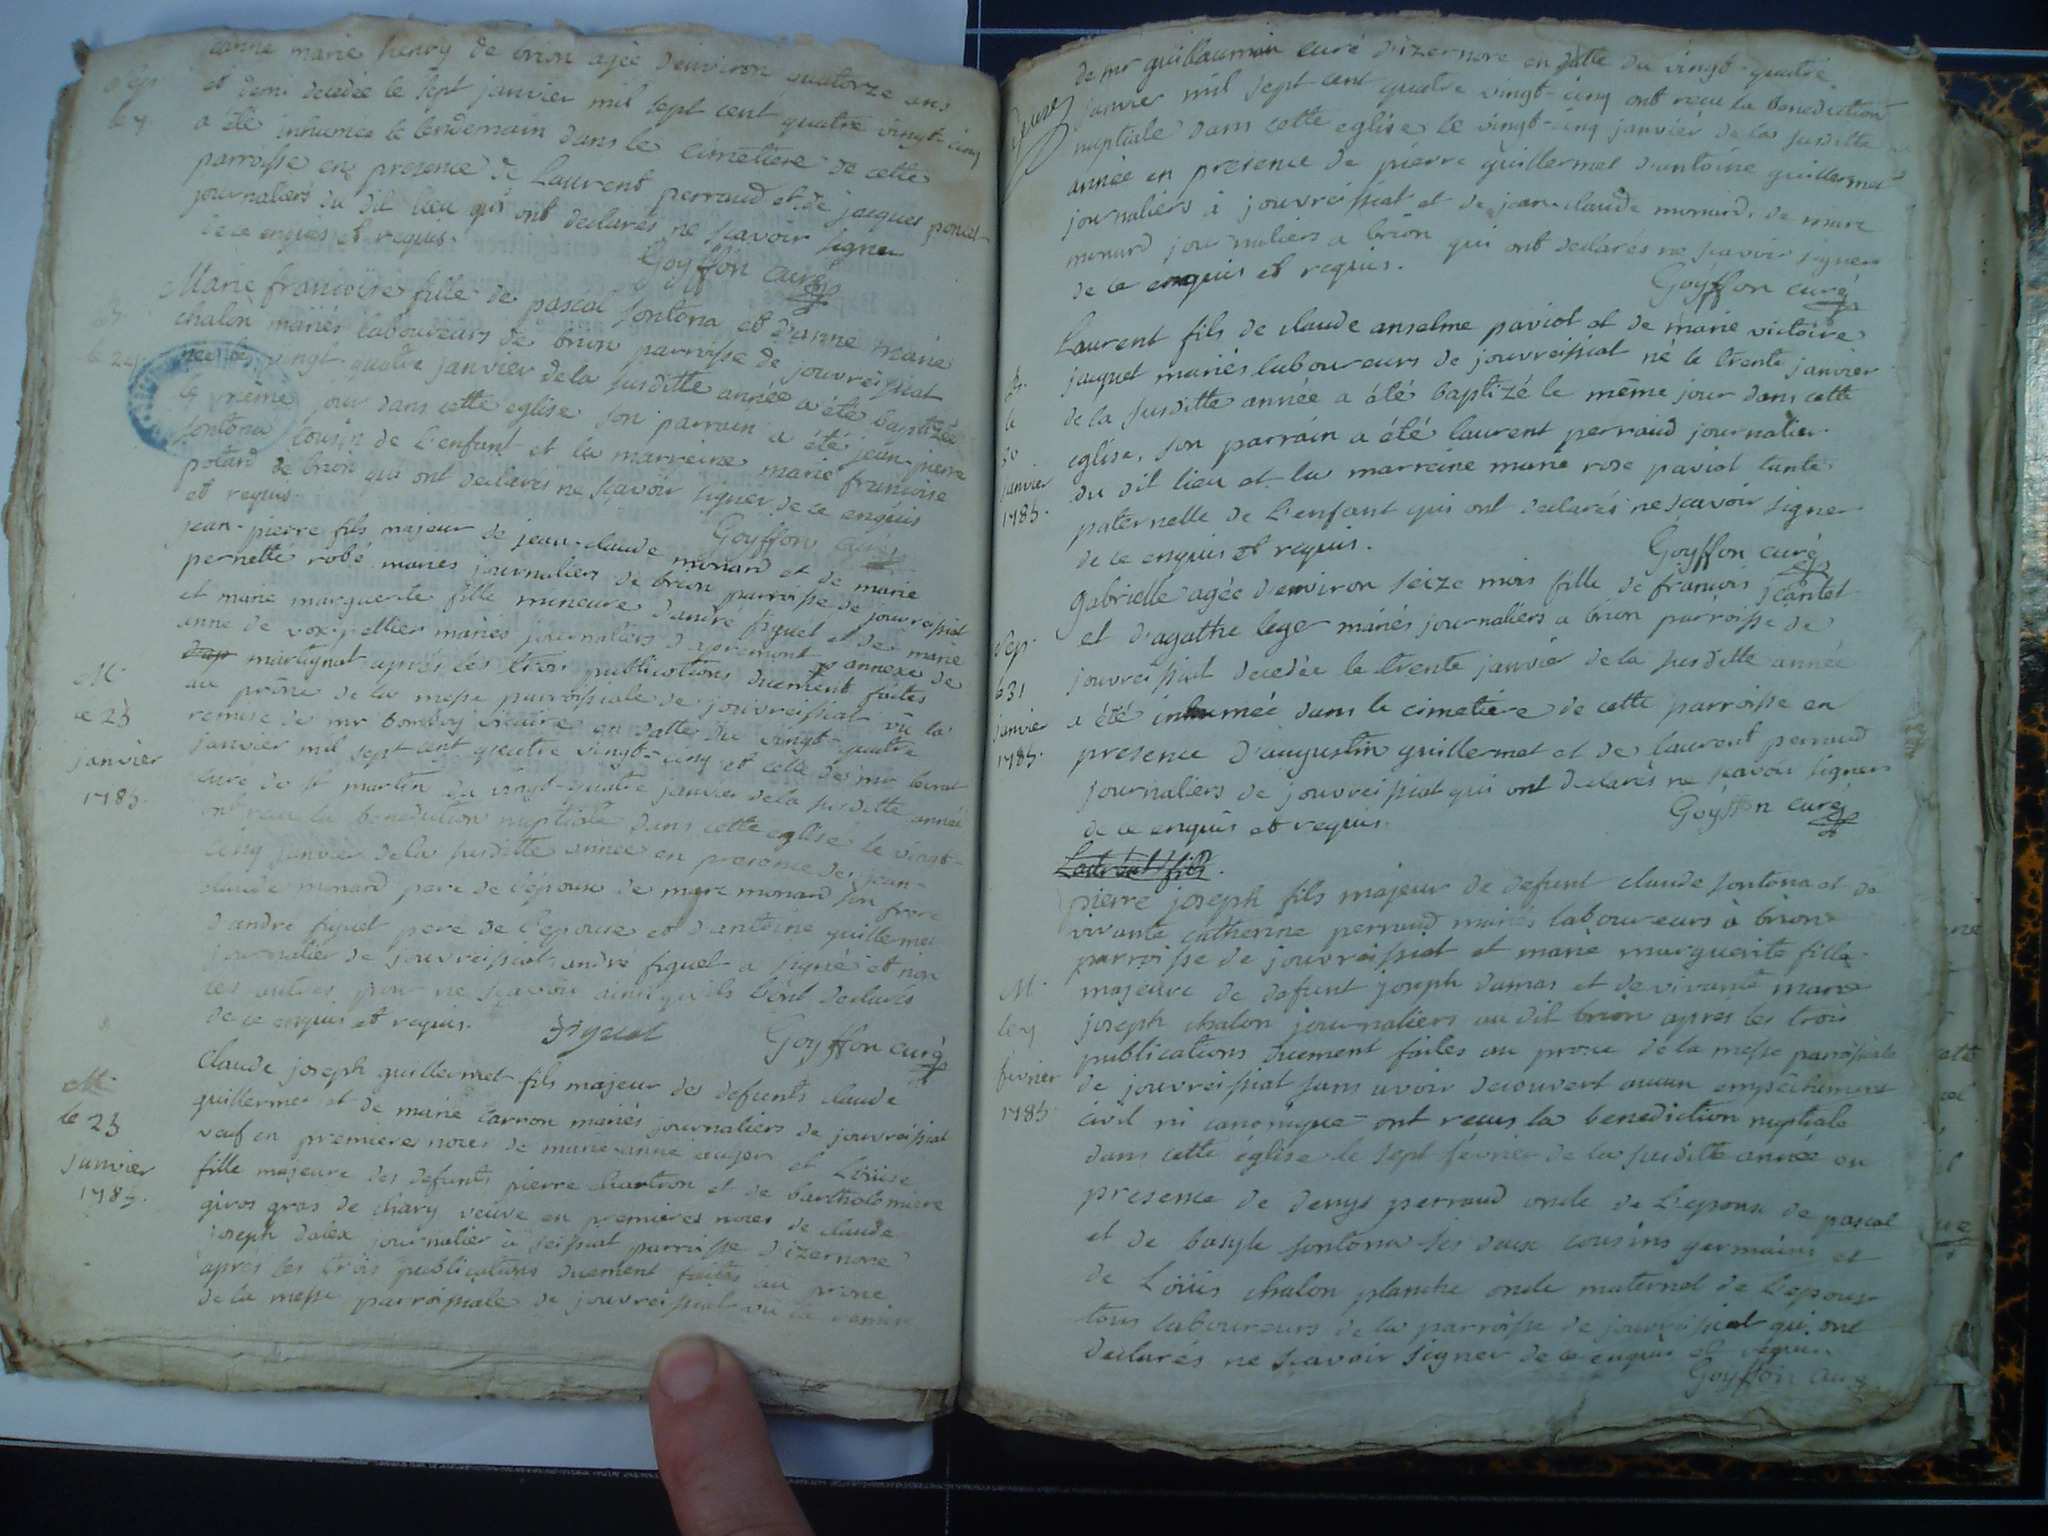 janne marie henry de brion agée d'environ quatorze ans
et demi decedée le sept janvier mil sept cent quatre vingt-cinq
a été inhumée le lendemain dans le cimetiere de cette
parroisse en presence de Laurent perraud et de jacques poncet
journaliers du dit lieu qui ont declarés ne scavoir signer
de ce enquis et requis.
Goyffon curé
Marie françoise fille de pascal sontona et d'anne marie
chalon mariés laboureurs de brion parroisse de jouvreissiat
née le vingt-quatre janvier de la susditte année a été baptizée
le même jour dans cette eglise son parrain a été jean-pierre
sontona cousin de l'enfant et la marreine marie françoise
potard de brion qui ont declarés ne scavoir signer de ce enquis
et requis
Goyffon curé
jean-pierre fils majeur de jean-claude monard et de marie
pernette robé mariés journaliers de brion parroisse de jouvreissiat
et marie marguerite fille mineure d'andré figuet et de marie
anne de vox-pellier mariés journaliers d'apremont annexe de
martignat aprés les trois publications duement faites
au prône de la messe parroissiale de jouvreissiat vû la
remise de mr vicaire en datte du vingt-quatre
janvier mil sept cent quatre vingt-cinq et celle de mr
curé de st martin du vingt-quatre janvier de la susditte année
ont recu la benediction nuptiale dans cette eglise le vingt-
cinq janvier de la susditte année en presence de jean-
claude monard pere de l'époux de marc monard son frere
d'andré figuet pere de l'epouse et d'antoine guillermet
journalier de jouvreissiat andré figuet a signé et non
les autres pour ne scavoir ainsi qu'ils l'ont declarés
de ce enquis et requis.
figuet
Goyffon curé
M
le 25
janvier
1785.
Claude joseph guillermet fils majeur des defunts claude
guillermet et de marie carron mariés journaliers de jouvreissiat
veuf en premieres noces de marie-anne et Loüise
fille majeure des defunts pierre chartron et de bartholomiere
giros gras de chary veuve en premieres noces de claude
joseph dalex journalier à seissiat parroisse d'izernore
aprés les trois publications duement faites au prone
de la messe parroissiale de jouvreissiat vu la remise
M
le 25
janvier
1785.
de mr guillaumin curé d'izernore en datte du vingt-quatre
janvier mil sept cent quatre vingt-cinq ont recu la benediction
nuptiale dans cette eglise le vingt-cinq janvier de la susditte
année en presence de pierre guillermet d'antoine guillermet
journaliers à jouvreissiat et de jean-claude monard, de marc
monard journaliers a brion qui ont declarés ne scavoir signer
de ce enquis et requis.
Goyffon curé
Laurent fils de claude anselme paviot et de marie victoire
jaquet mariés laboureurs de jouvreissiat né le trente janvier
de la susditte année a été baptizé le même jour dans cette
eglise, son parrain a été laurent perraud journalier
du dit lieu et la marreine marie rose paviot tante
paternelle de l'enfant qui ont declarés ne scavoir signer
de ce enquis et requis.
Goyffon curé
B.
le
30
janvier
1785.
Gabrielle agée d'environ seize mois fille de françois
et d'agathe leger mariés journaliers a brion parroisse de
jouvreissiat decedée le trente janvier de la susditte année
a été inhumée dans le cimetiére de cette parroisse en
presence d'augustin guillermet et de laurent perraud
journaliers de jouvreissiat qui ont declarés ne scavoir signer
de ce enquis et requis.
Goyffon curé
Sep.
le 31
janvier
1785.
pierre joseph fils majeur de defunt claude sontona et de
vivante catherine perraud mariés laboureurs à brion
parroisse de jouvreissiat et marie marguerite fille
majeure de defunt joseph damas et de vivante marie
joseph chalon journaliers au dit brion apres les trois
publications duement faites au prone de la messe parroissiale
de jouvreissiat sans avoir decouvert aucun empêchement
civil ni canonique ont recus la benediction nuptiale
dans cette église le sept février de la susditte année en
presence de denys perraud oncle de l'epoux de pascal
et de basyle sontona ses deux cousins germains et
de Loüis chalon planche oncle maternel de l'epouse
tous laboureurs de la parroisse de jouvreissiat qui ont
declarés ne scavoir signer de ce enquis et requis
Goyffon curé
M.
le 7
février
1785.